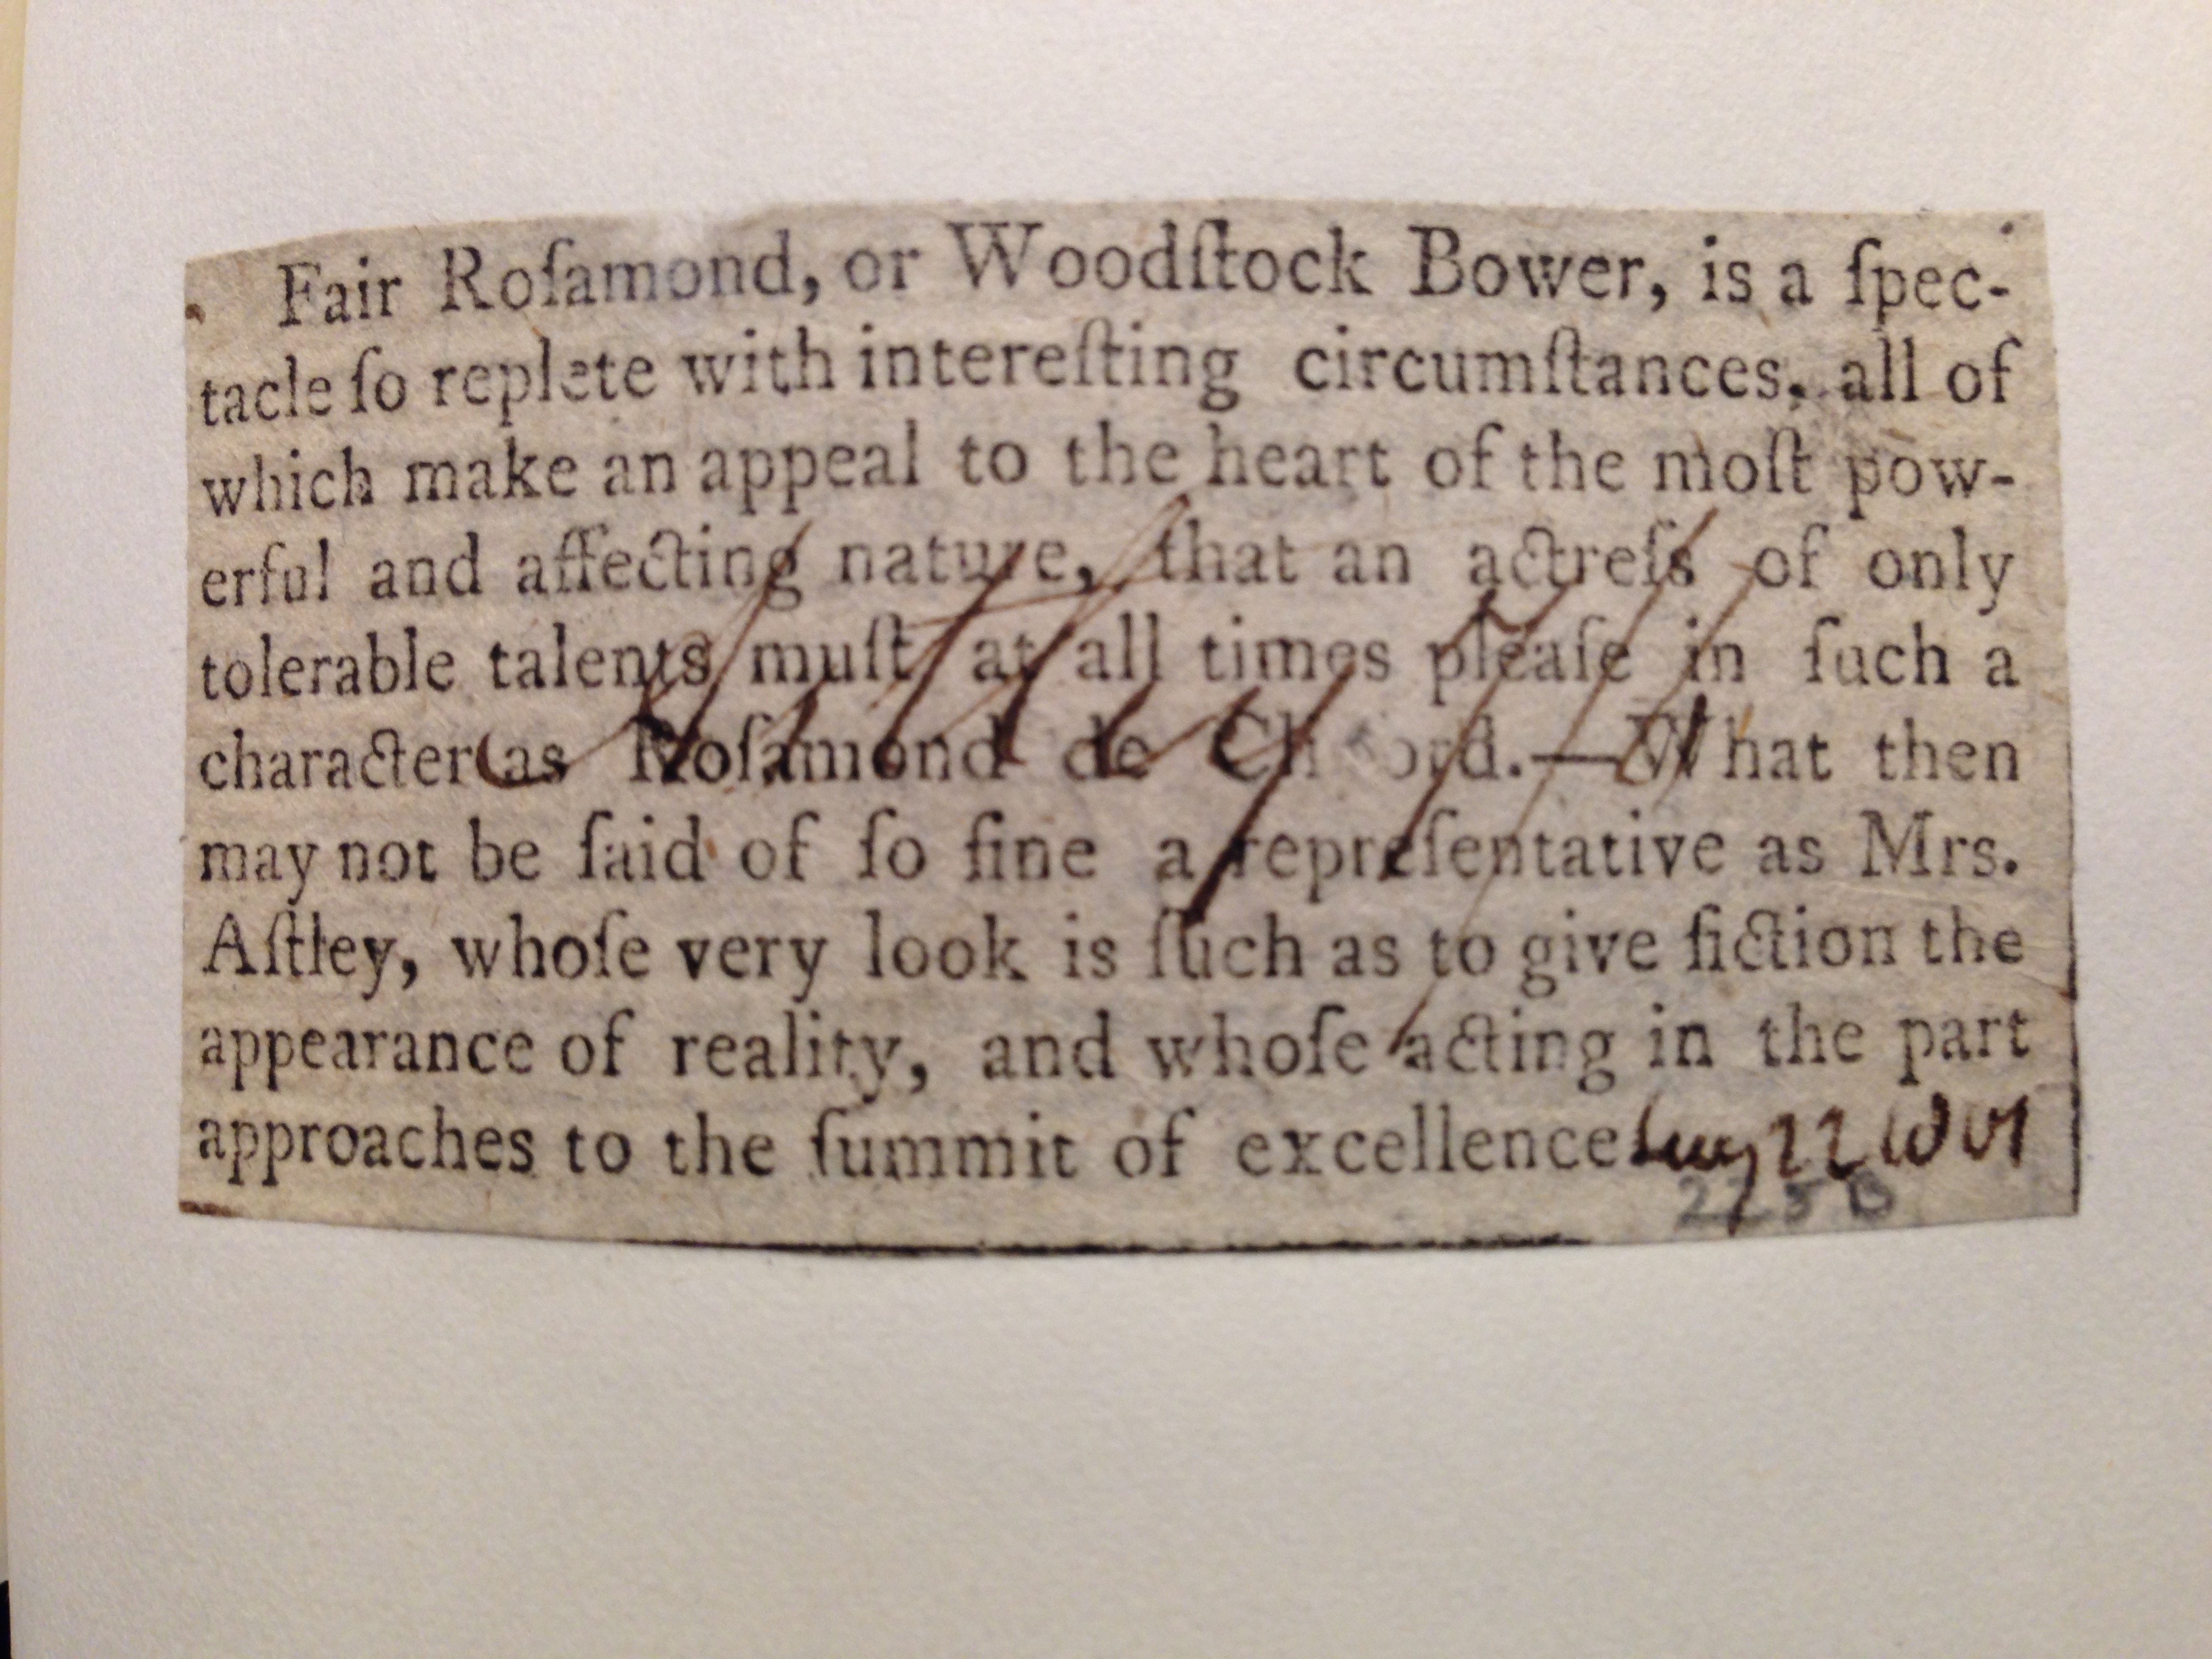 Fair Roſamond, or Woodſtock Bower, is a ſpec-
tacle ſo replete with intereſting circumſtances, all of
which make an appeal to the heart of the moſt pow-
erful and affecting nature, that an actreſs of only
tolerable talents muſt at all times pleaſe in ſuch a
character as Roſamond de Cli ord.—What then
may not be ſaid of ſo fine a repreſentative as Mrs.
Aſtley, whoſe very look is ſuch as to give fiction the
appearance of reality, and whoſe acting in the part
approaches to the ſummit of excellence.
Astley's
225 B